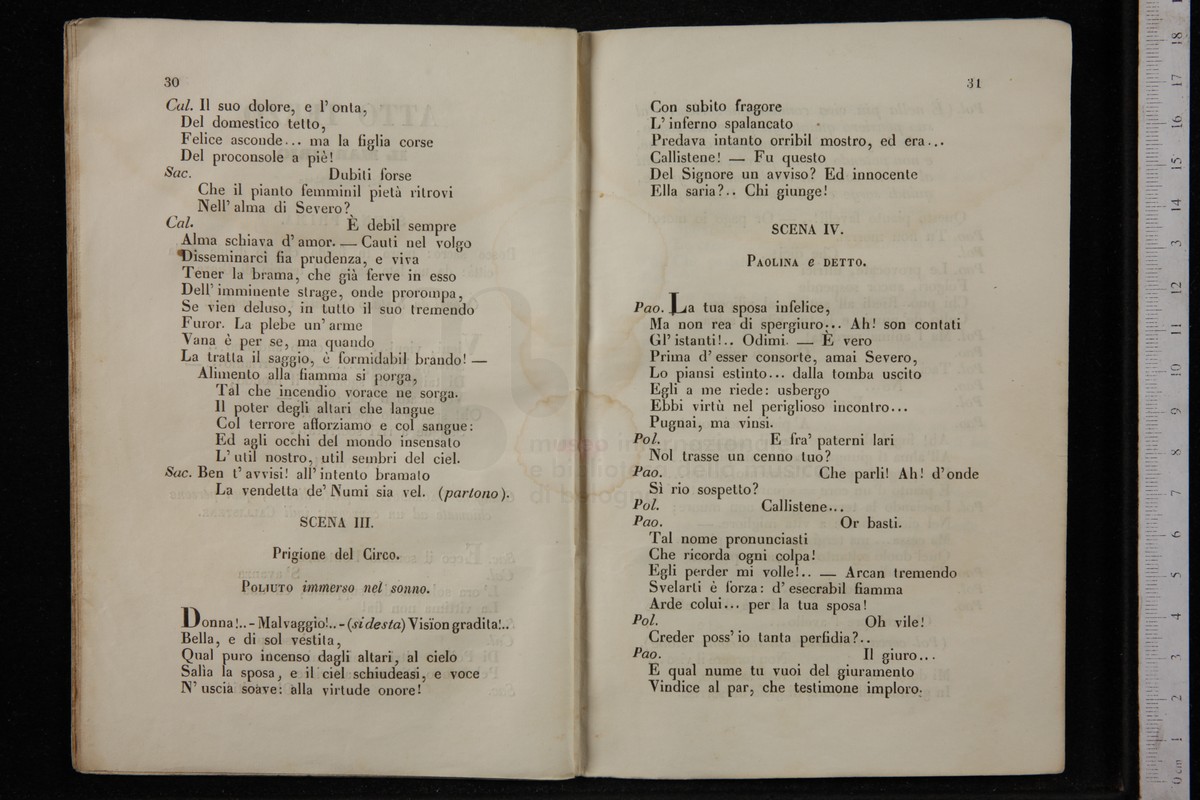 30
Cal. Il suo dolore, e l' onta,
Del domestico tetto,
Felice asconde... ma la figlia corse
Del proconsole a piè!
Sac. Dubiti forse
Che il pianto femminil pietà ritrovi
Nell' alma di Severo?
Cal. È debil sempre
Alma schiava d' amor. — Cauti nel volgo
Disseminarci fia prudenza, e viva
Tener la brama, che già ferve in esso
Dell' imminente strage, onde prorompa,
Se vien deluso, in tutto il suo tremendo
Furor. La plebe un' arme
Vana è per se, ma quando
La tratta il saggio, è formidabil brando! —
Alimento alla fiamma si porga,
Tal che incendio vorace ne sorga.
Il poter degli altari che langue
Col terrore afforziamo e col sangue:
Ed agli occhi del mondo insensato
L' util nostro, util sembri del ciel.
Sac. Ben t' avvisi! all' intento bramato
La vendetta de' Numi sia vel. (partono).
SCENA III.
Prigione del Circo.
POLIUTO immerso nel sonno.
Donna!.. - Malvaggio!.. - (si desta) Visïon gradita!..
Bella, e di sol vestita,
Qual puro incenso dagli altari, al cielo
Salìa la sposa, e il ciel schiudeasi, e voce
N' uscia soave: alla virtude onore!
31
Con subito fragore
L' inferno spalancato
Predava intanto orribil mostro, ed era...
Callistene! — Fu questo
Del Signore un avviso? Ed innocente
Ella saria?.. Chi giunge!
SCENA IV.
PAOLINA e DETTO.
Pao. La tua sposa infelice,
Ma non rea di spergiuro... Ah! son contati
Gl' istanti!.. Odimi. — È vero
Prima d' esser consorte, amai Severo,
Lo piansi estinto... dalla tomba uscito
Egli a me riede: usbergo
Ebbi virtù nel periglioso incontro...
Pugnai, ma vinsi.
Pol. E fra' paterni lari
Nol trasse un cenno tuo?
Pao. Che parli! Ah! d'onde
Sì rio sospetto?
Pol. Callistene...
Pao. Or basti.
Tal nome pronunciasti
Che ricorda ogni colpa!
Egli perder mi volle!.. — Arcan tremendo
Svelarti è forza: d' esecrabil fiamma
Arde colui... per la tua sposa!
Pol. Oh vile!
Creder poss' io tanta perfidia?..
Pao. Il giuro...
E qual nume tu vuoi del giuramento
Vindice al par, che testimone imploro.